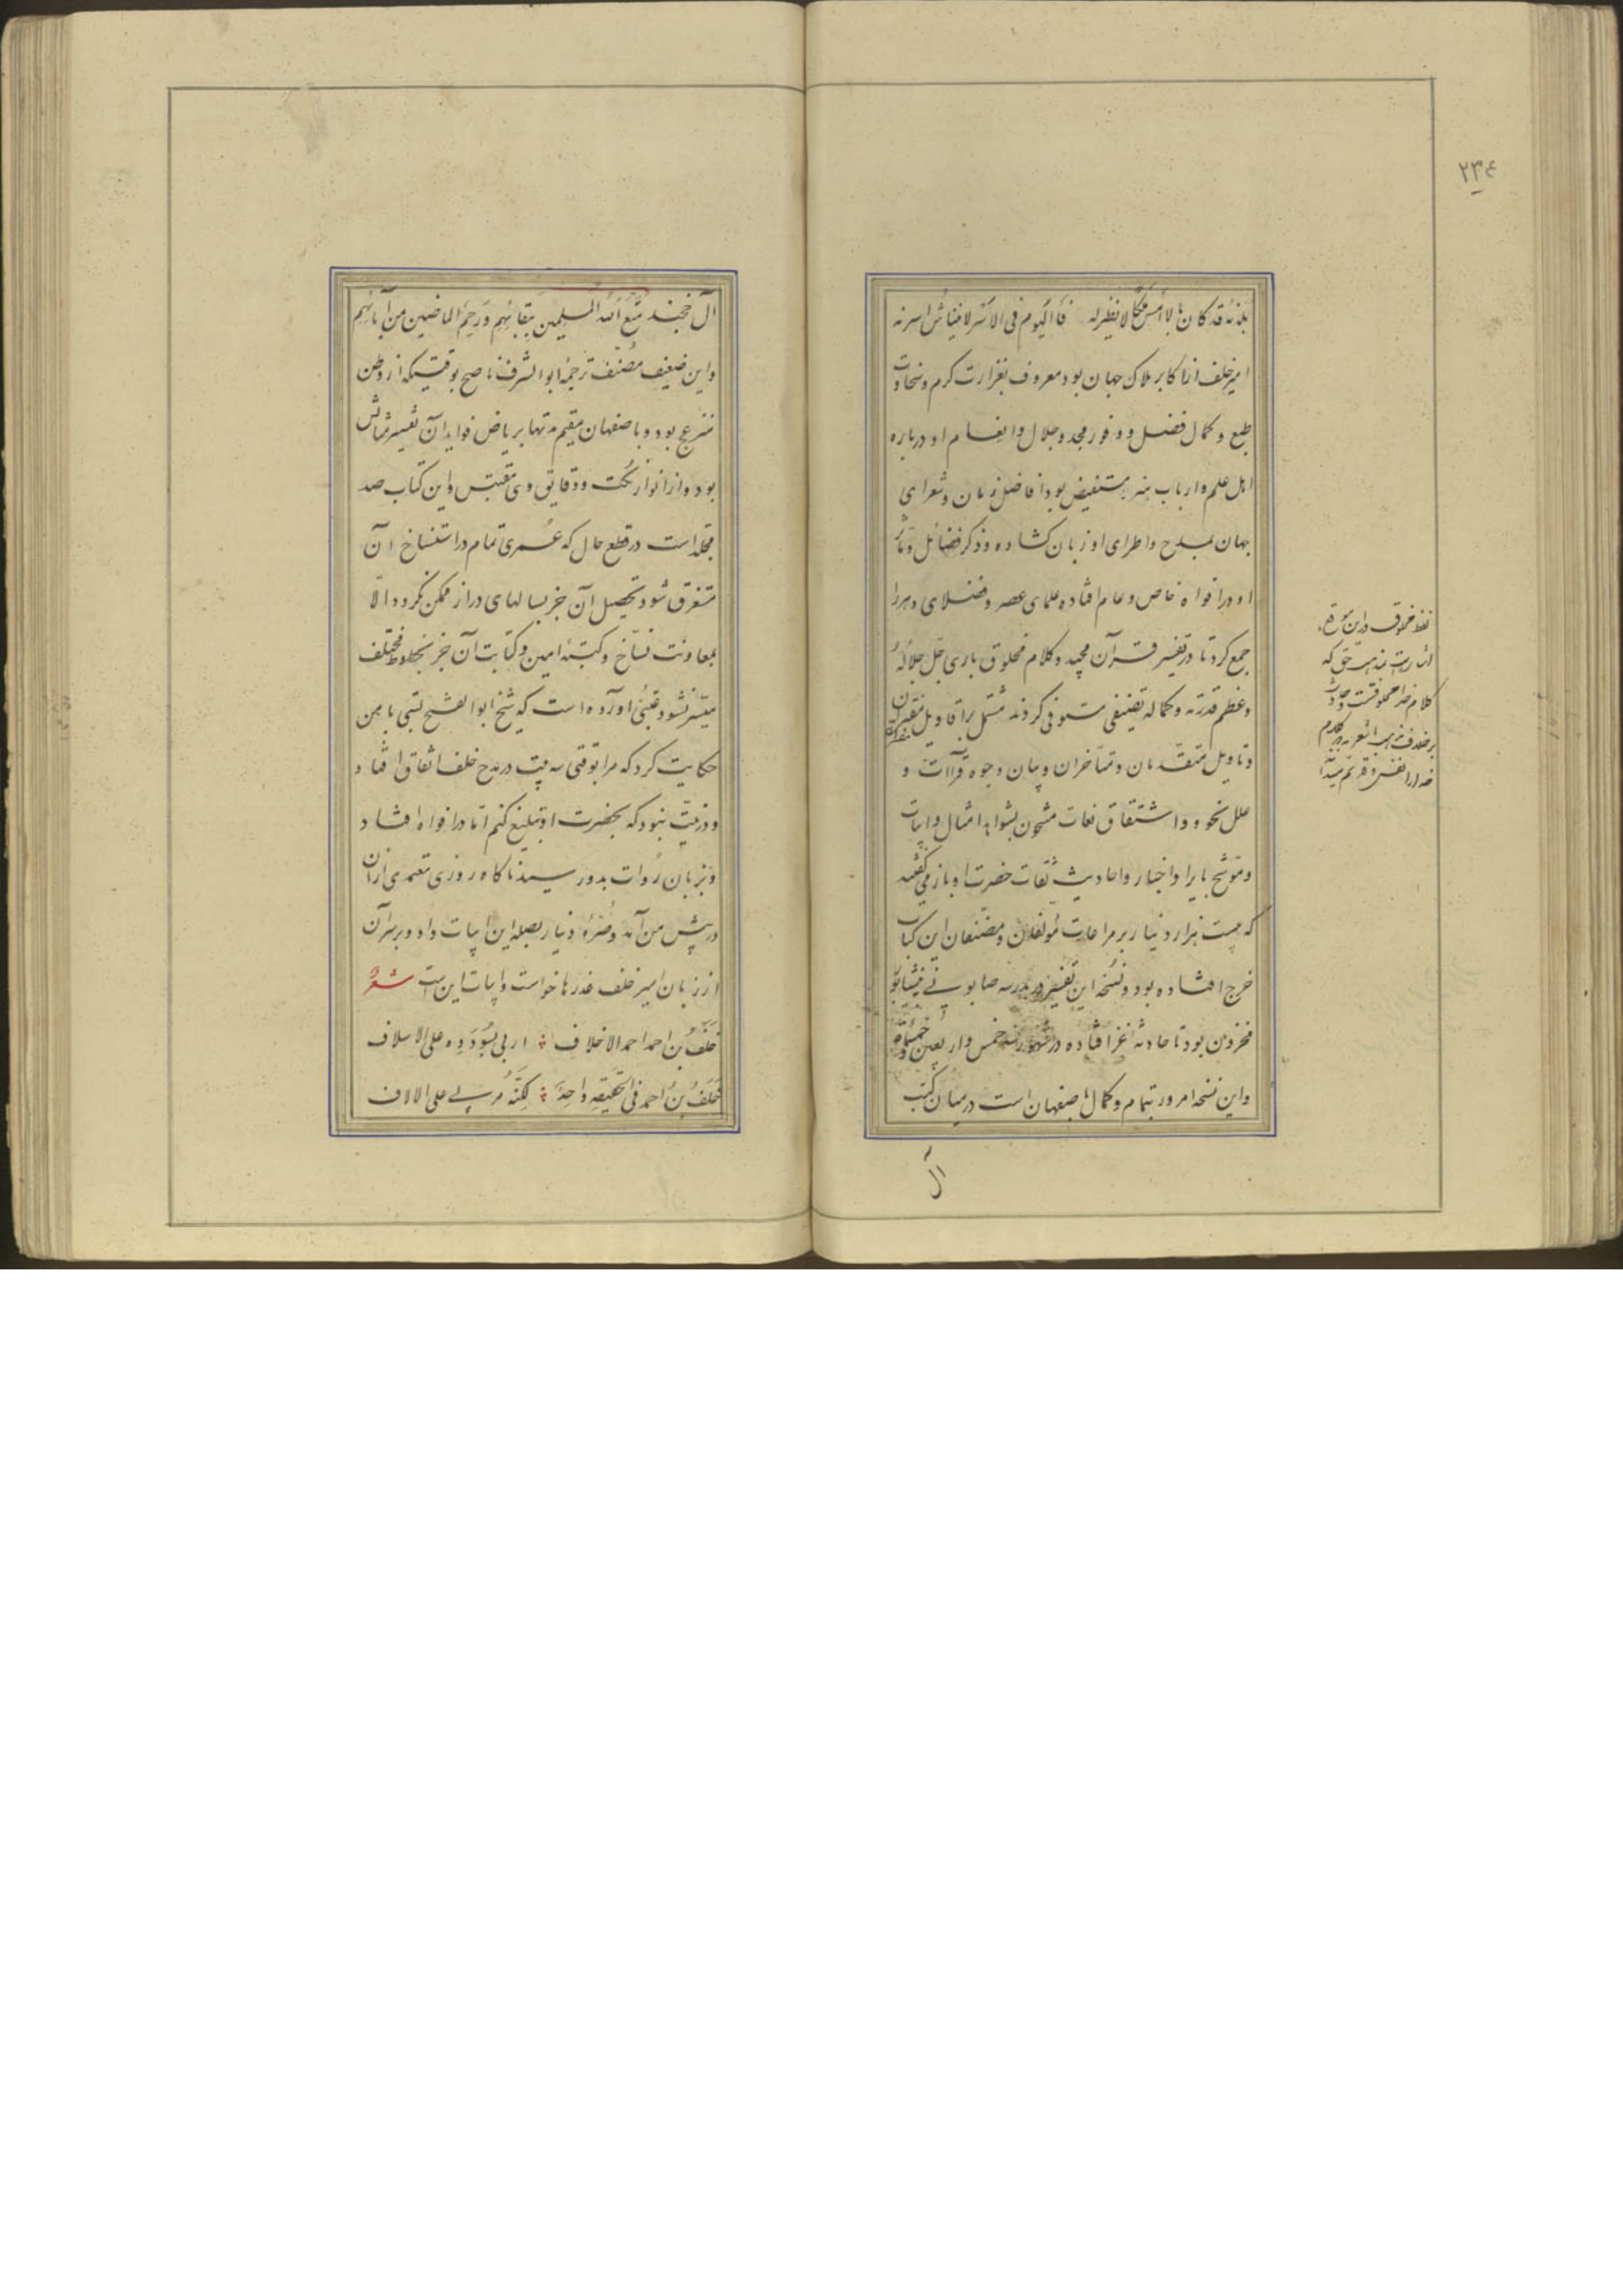 ۲۳۴
بلدته قد کان بالامس ملکا لا نظیر له فالیوم فی الاسر لا ینتاش اسرته
امیر خلف از اکابر ملوک جهان بود معروف بغزارت کرم و سخاوت
طبع و کمال فضل و وفور مجد و جلال و انعام او درباره
اهل علم و ارباب هنر مستفیض بود افاضل زمان و شعرای
جهان بمدح و اطرای او زبان کشاده و ذکر فضائل و مآثر
او در افواه خاص و عام افتاده علمای عصر و فضلای دهر را
جمع کرد تا در تفسیر قرآن مجید و کلام مخلوق باری جل جلاله
و عظم قدرته و کماله تصنیفی مستوفی کردند مشتمل بر اقاویل مفسران
و تاویل متقدمان و متأخران و بیان وجوه قراآت و
علل نحو و اشتقاق لغات مشحون بشواهد امثال و ابیات
و موشح بایراد اخبار و احادیث ثقات حضرت او باز می گفتند
که بیست هزار دنیار بر مراعات مؤلفان و مصنفان این کتاب
خرج افتاده بود و نسخه این تفسیر در مدرسه صابونی نیشابور
مخزون بود تا حادثه غز افتاده در شهور سنه خمس و اربعین و خمسمائه
و این نسخه امروز بتمام و کمال باصفهان است در میان کتب
آل
لفظ مخلوق در این موقع
اشارت بمذهب حق که
کلام خدا مخلوقست و حادث
بر خلاف مذهب اشعریه که کلام
خدا را نفسی و قدیم میدانند
آل خجند متع الله المسلمین ببقائهم و رحم الماضین من آبائهم
و این ضعیف مصنف ترجمه ابوالشرف ناصح بوقتیکه از وطن
منزعج بود و باصفهان مقیم مدتها بریاض فواید آن تفسیر مستأنس
بود و از انوار نکت و دقایق وی مقتبس و این کتاب صد
مجلد است در قطع حال که عمری تمام در استنساخ آن
مستغرق شود و تحصیل آن جز بسالهای دراز ممکن نکردد الا
بمعاونت نساخ و کتبه امین و کتابت آن جز بخطوط مختلف
میسر نشود عتبی آورده است که شیخ ابوالفتح بستی با من
حکایت کرد که مرا بوقتی سه بیت در مدح خلف اتفاق افتاد
و در نیت نبود که بحضرت او تبلیغ کنم اما در افواه افتاد
و بزبان روات بدو رسید ناکاه روزی معتمدی از آن
در پیش من آمد و صره دنیار بصله این ابیات داد و بر سر آن
از زبان امیر خلف عذرها خواست و ابیات این است شعر
خلف بن احمد احمد الاخلاف اربی بسودده علی الاسلاف
خلف بن احمد فی الحقیقه واحد لکنه مربی علی الالاف